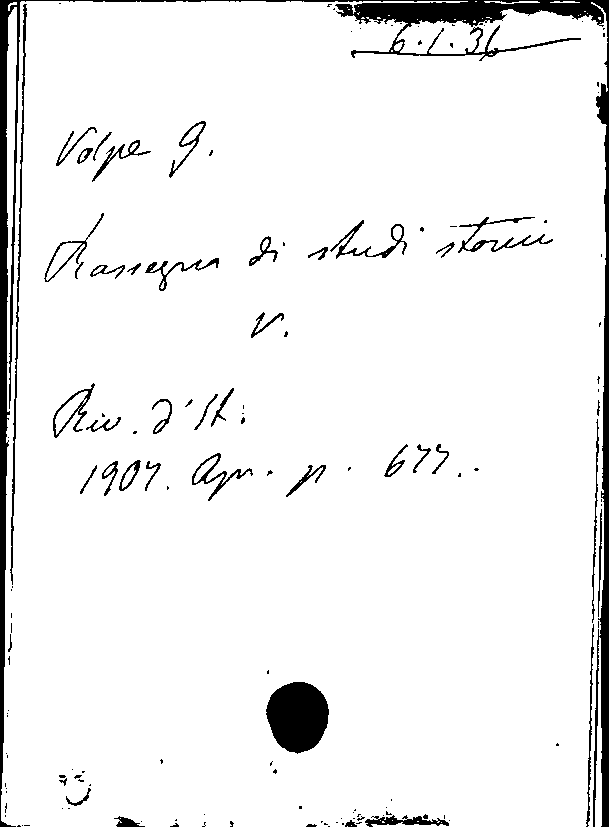 6.1.36
Volpe G.
Rassegna di studi storici
V.
Riv. d'It.
1907. Apr. p. 677.